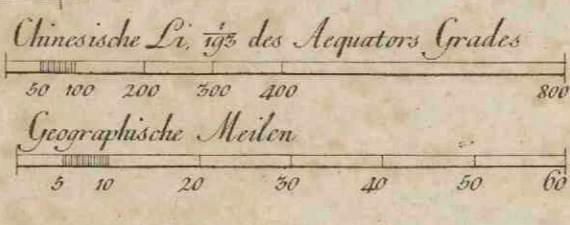 Chinesische Li, 1/193 des Aequators Grades
50 100 200 300 400 800
Geographische Meilen
5 10 20 30 40 50 60